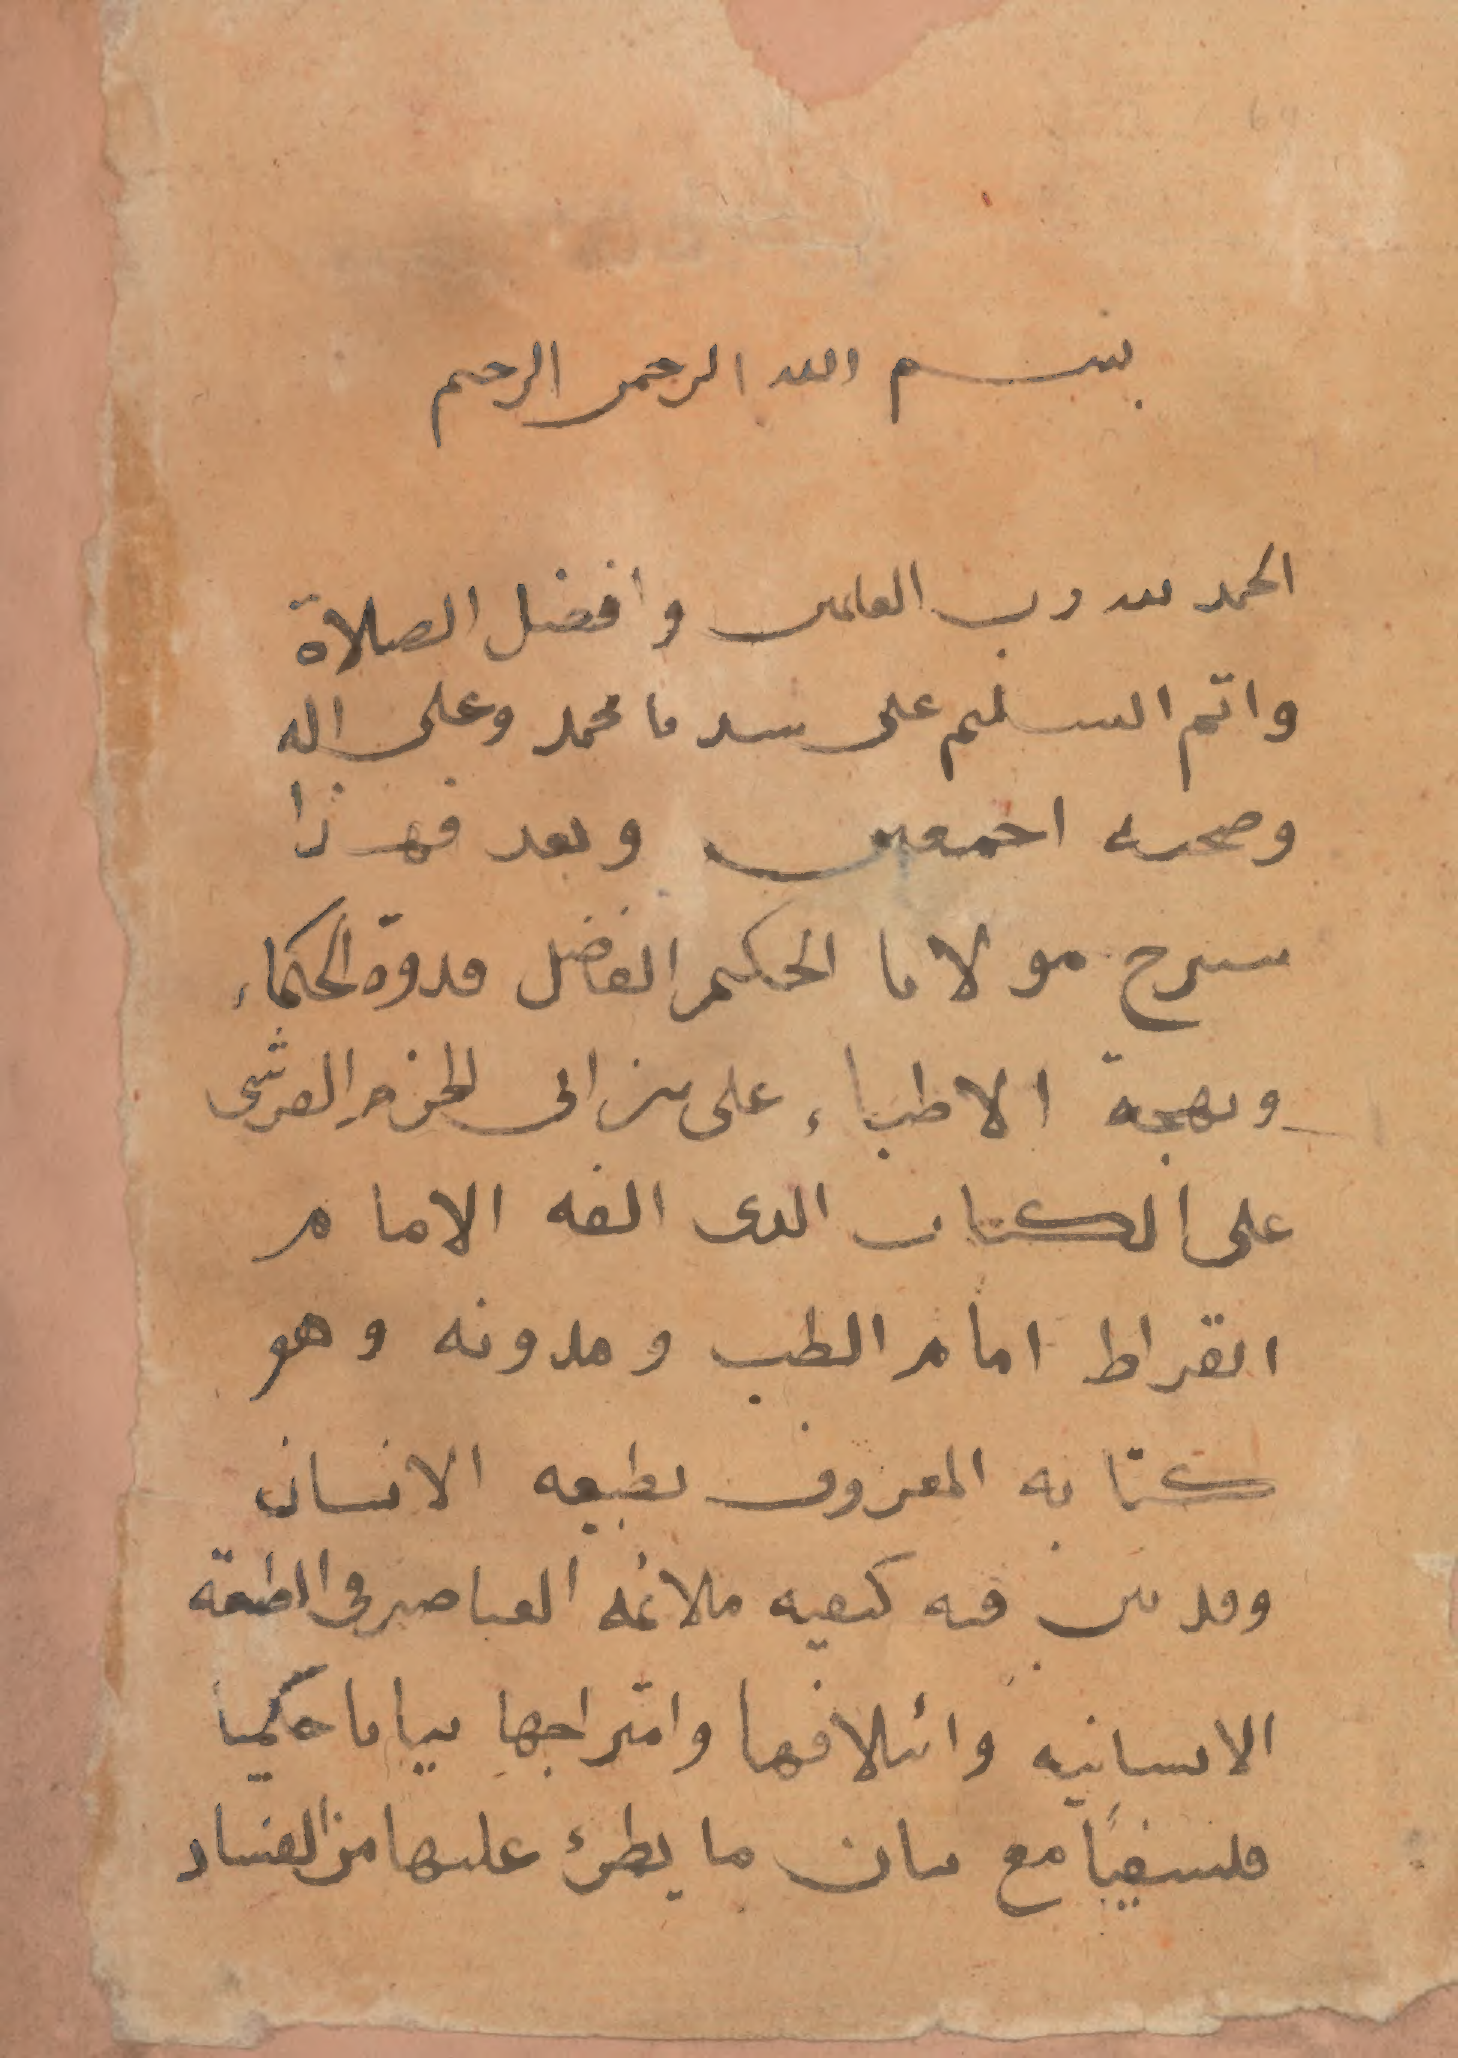 بسم الله الرحمن الرحيم
الحمد لله رب العالمين وافضل الصلاة
واتم التسليم على سيدنا محمد وعلى اله
وصحبه اجمعين وبعد فهذا
شرح مولانا الحكيم الفاضل قدوة الحكماء
وبهجة الاطباء على بن ابى الحزم القرشى
على الكتاب الذى الفه الامام
ابقراط امام الطب ومدونه وهو
كتابه المعروف بطبيعه الانسان
وقد بين فيه كيفيه ملائمة العناصر فى الطبيعة
الانسانيه وائتلافها وامتزاجها بيانا حكميا
فلسفيا مع بيان ما يطرئ عليها من الفساد